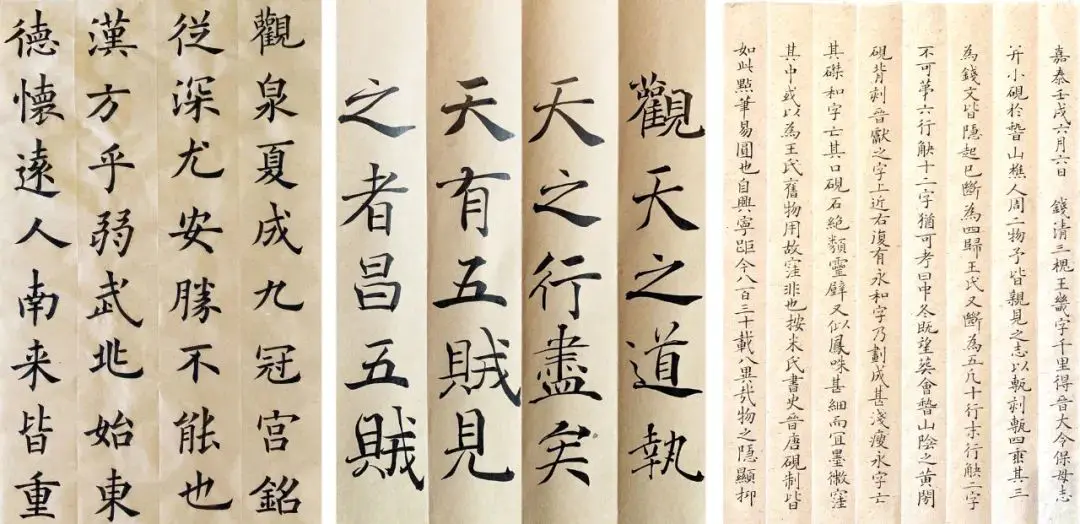 觀泉夏成九冠宮銘
従深尤安勝不能也
漢方乎弱武兆始東
德懷遠人南来皆重
觀天之道執
天之行盡矣
天有五賊見
之者昌五賊
嘉泰壬戌六月六日 錢清三槐王畿字千里得晉大令保母志
并小硯於嵇山樵人周二物予皆親見之志以甎刻甎四垂其三
為錢文皆隱起已斷為四歸王氏又斷為五凡十行末行觖二字
不可苐六行觖十二字猶可考曰中冬既望葬會嵇山陰之黃閍
硯背刻晉獻之字上近右復有永和字乃劃成甚淺瘦永字亡
其磔和字亡其口硯石絕類靈璧又似鳳咮甚細而宜墨微窪
其中或以為王氏舊物用故窪非也按米氏書史晉唐硯制皆
如此點筆易圓也自興寧距今八百三十載八異哉物之隱顯抑